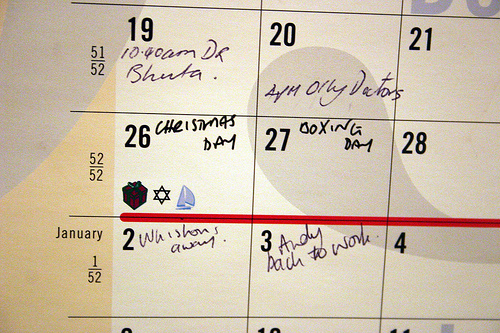 19
20
21
51
52
10.40am DR
Bhutta.
4pm Orly Doctors
26
CHRISTMAS
DAY
27
BOXING
DAY
28
52
52
January
2
away.
3
Andy
back to work.
4
1
52